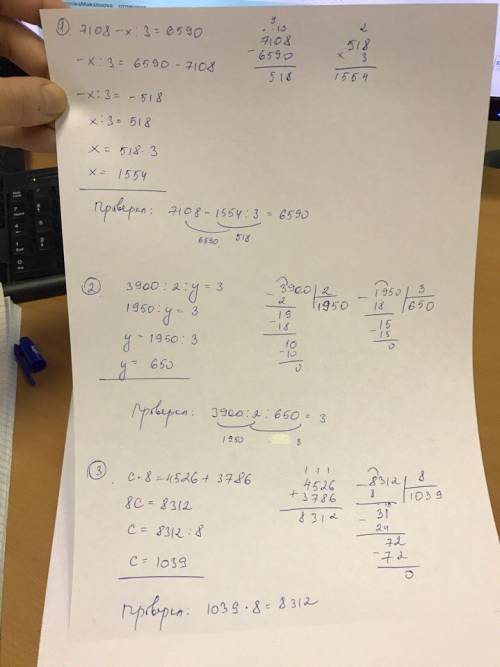 1
7108 - x : 3 = 6590
- x : 3 = 6590 - 7108
- x : 3 = - 518
x : 3 = 518
x = 518 · 3
x = 1554
9
10
7108
- 6590
518
2
518
× 3
1554
Проверка: 7108 - 1554 : 3 = 6590
6590 518
2
3900 : 2 : y = 3
1950 : y = 3
y = 1950 : 3
y = 650
- 3900 | 2
2 1950
- 19
18
10
- 10
0
- 1950 | 3
18 650
- 15
15
0
Проверка: 3900 : 2 : 650 = 3
1950 3
3
c · 8 = 4526 + 3786
8c = 8312
c = 8312 : 8
c = 1039
1 1 1
4526
+ 3786
8312
- 8312 | 8
8 1039
- 31
24
72
- 72
0
Проверка: 1039 · 8 = 8312